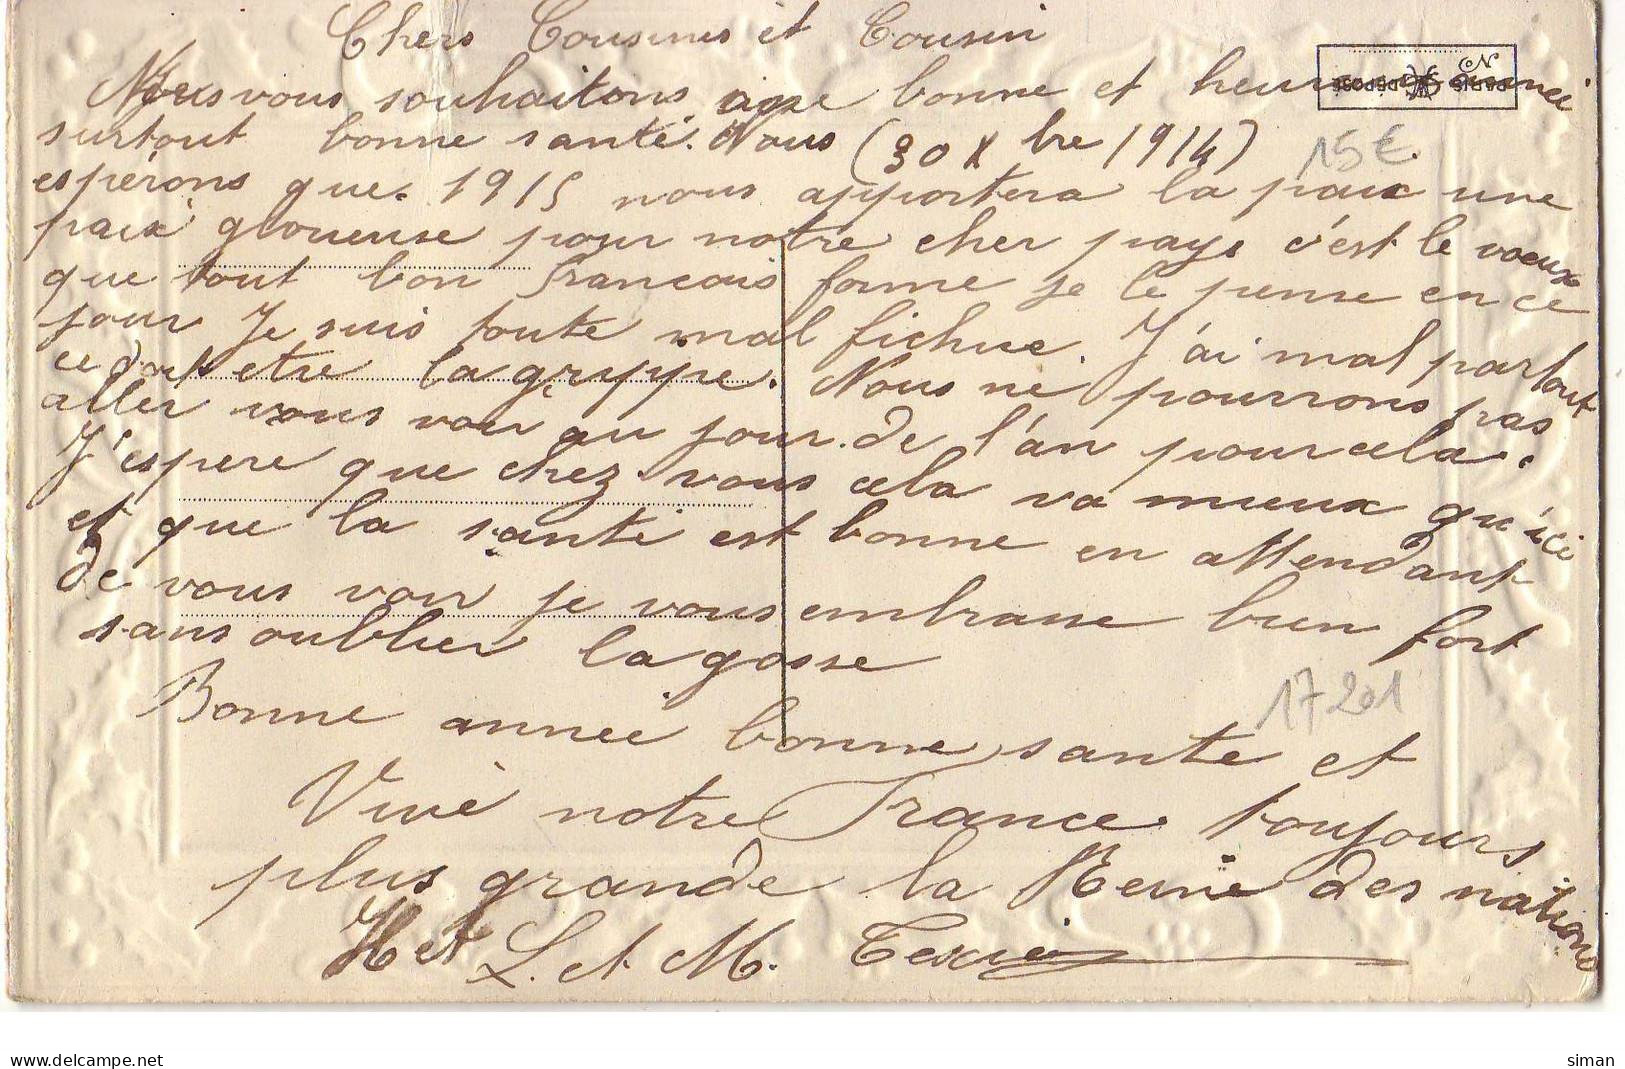 Chers Cousines et Cousin
Nous vous souhaitons une bonne et heureuse année
surtout bonne santé. Nous (30 Xbre 1914)
espérons que. 1915 nous apportera la paix une
paix glorieuse pour notre cher pays c'est le voeux
que tout bon francais forme je le pense en ce
jour Je suis toute mal fichue. J'ai mal partout
ce doit etre la grippe. Nous ne pourrons pas
aller vous voir au jour de l'an pour cela.
J'espere que chez vous cela va mieux qu'ici
et que la santé est bonne en attendant
de vous voir je vous embrasse bien fort
sans oublier la gosse
Bonne année bonne santé et
Vive notre France toujours
plus grande la Reine des nations
H et L. et M. Texier
PARIS DEPOSE
No
15€
17201
delcampe.net
siman